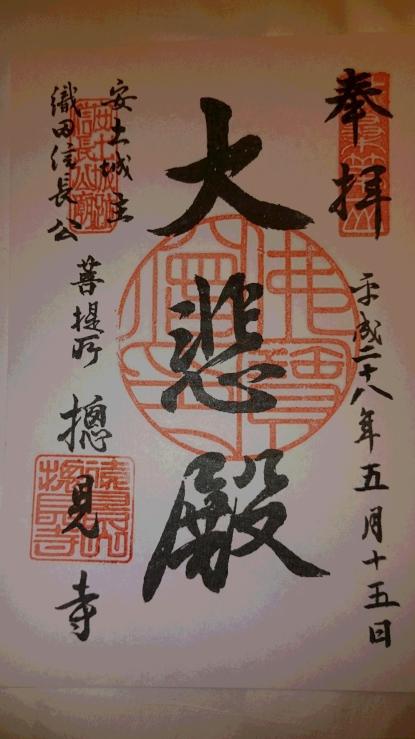 奉拝
平成二十八年五月十五日
大悲殿
安土城主
織田信長公
菩提所 摠見寺